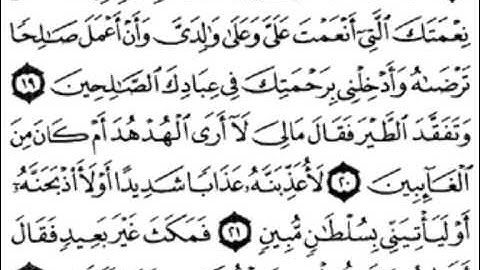 نِعْمَتَكَ ٱلَّتِىٓ أَنْعَمْتَ عَلَىَّ وَعَلَىٰ وَٰلِدَىَّ وَأَنْ أَعْمَلَ صَٰلِحًا
تَرْضَىٰهُ وَأَدْخِلْنِى بِرَحْمَتِكَ فِى عِبَادِكَ ٱلصَّٰلِحِينَ ١٩
وَتَفَقَّدَ ٱلطَّيْرَ فَقَالَ مَالِىَ لَآ أَرَى ٱلْهُدْهُدَ أَمْ كَانَ مِنَ
ٱلْغَآئِبِينَ ٢٠ لَأُعَذِّبَنَّهُۥ عَذَابًا شَدِيدًا أَوْ لَأَا۟ذْبَحَنَّهُۥٓ
أَوْ لَيَأْتِيَنِّى بِسُلْطَٰنٍ مُّبِينٍ ٢١ فَمَكَثَ غَيْرَ بَعِيدٍ فَقَالَ